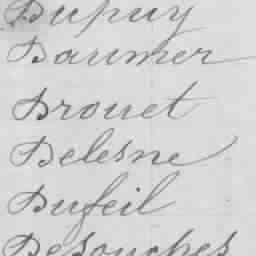 Dupuy
Daumer
Drouet
Delesne
Dufeil
Desouches